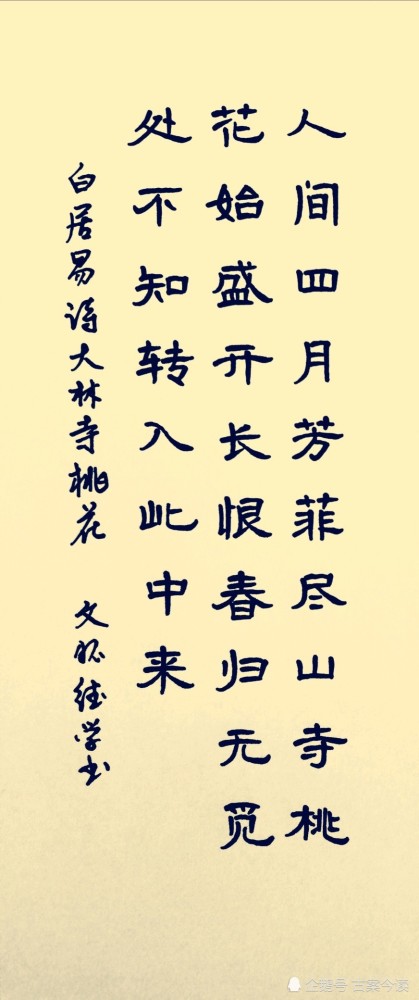 人间四月芳菲尽山寺桃
花始盛开长恨春归无觅
处不知转入此中来
白居易诗大林寺桃花 文
学书
企鹅号 古案今谈